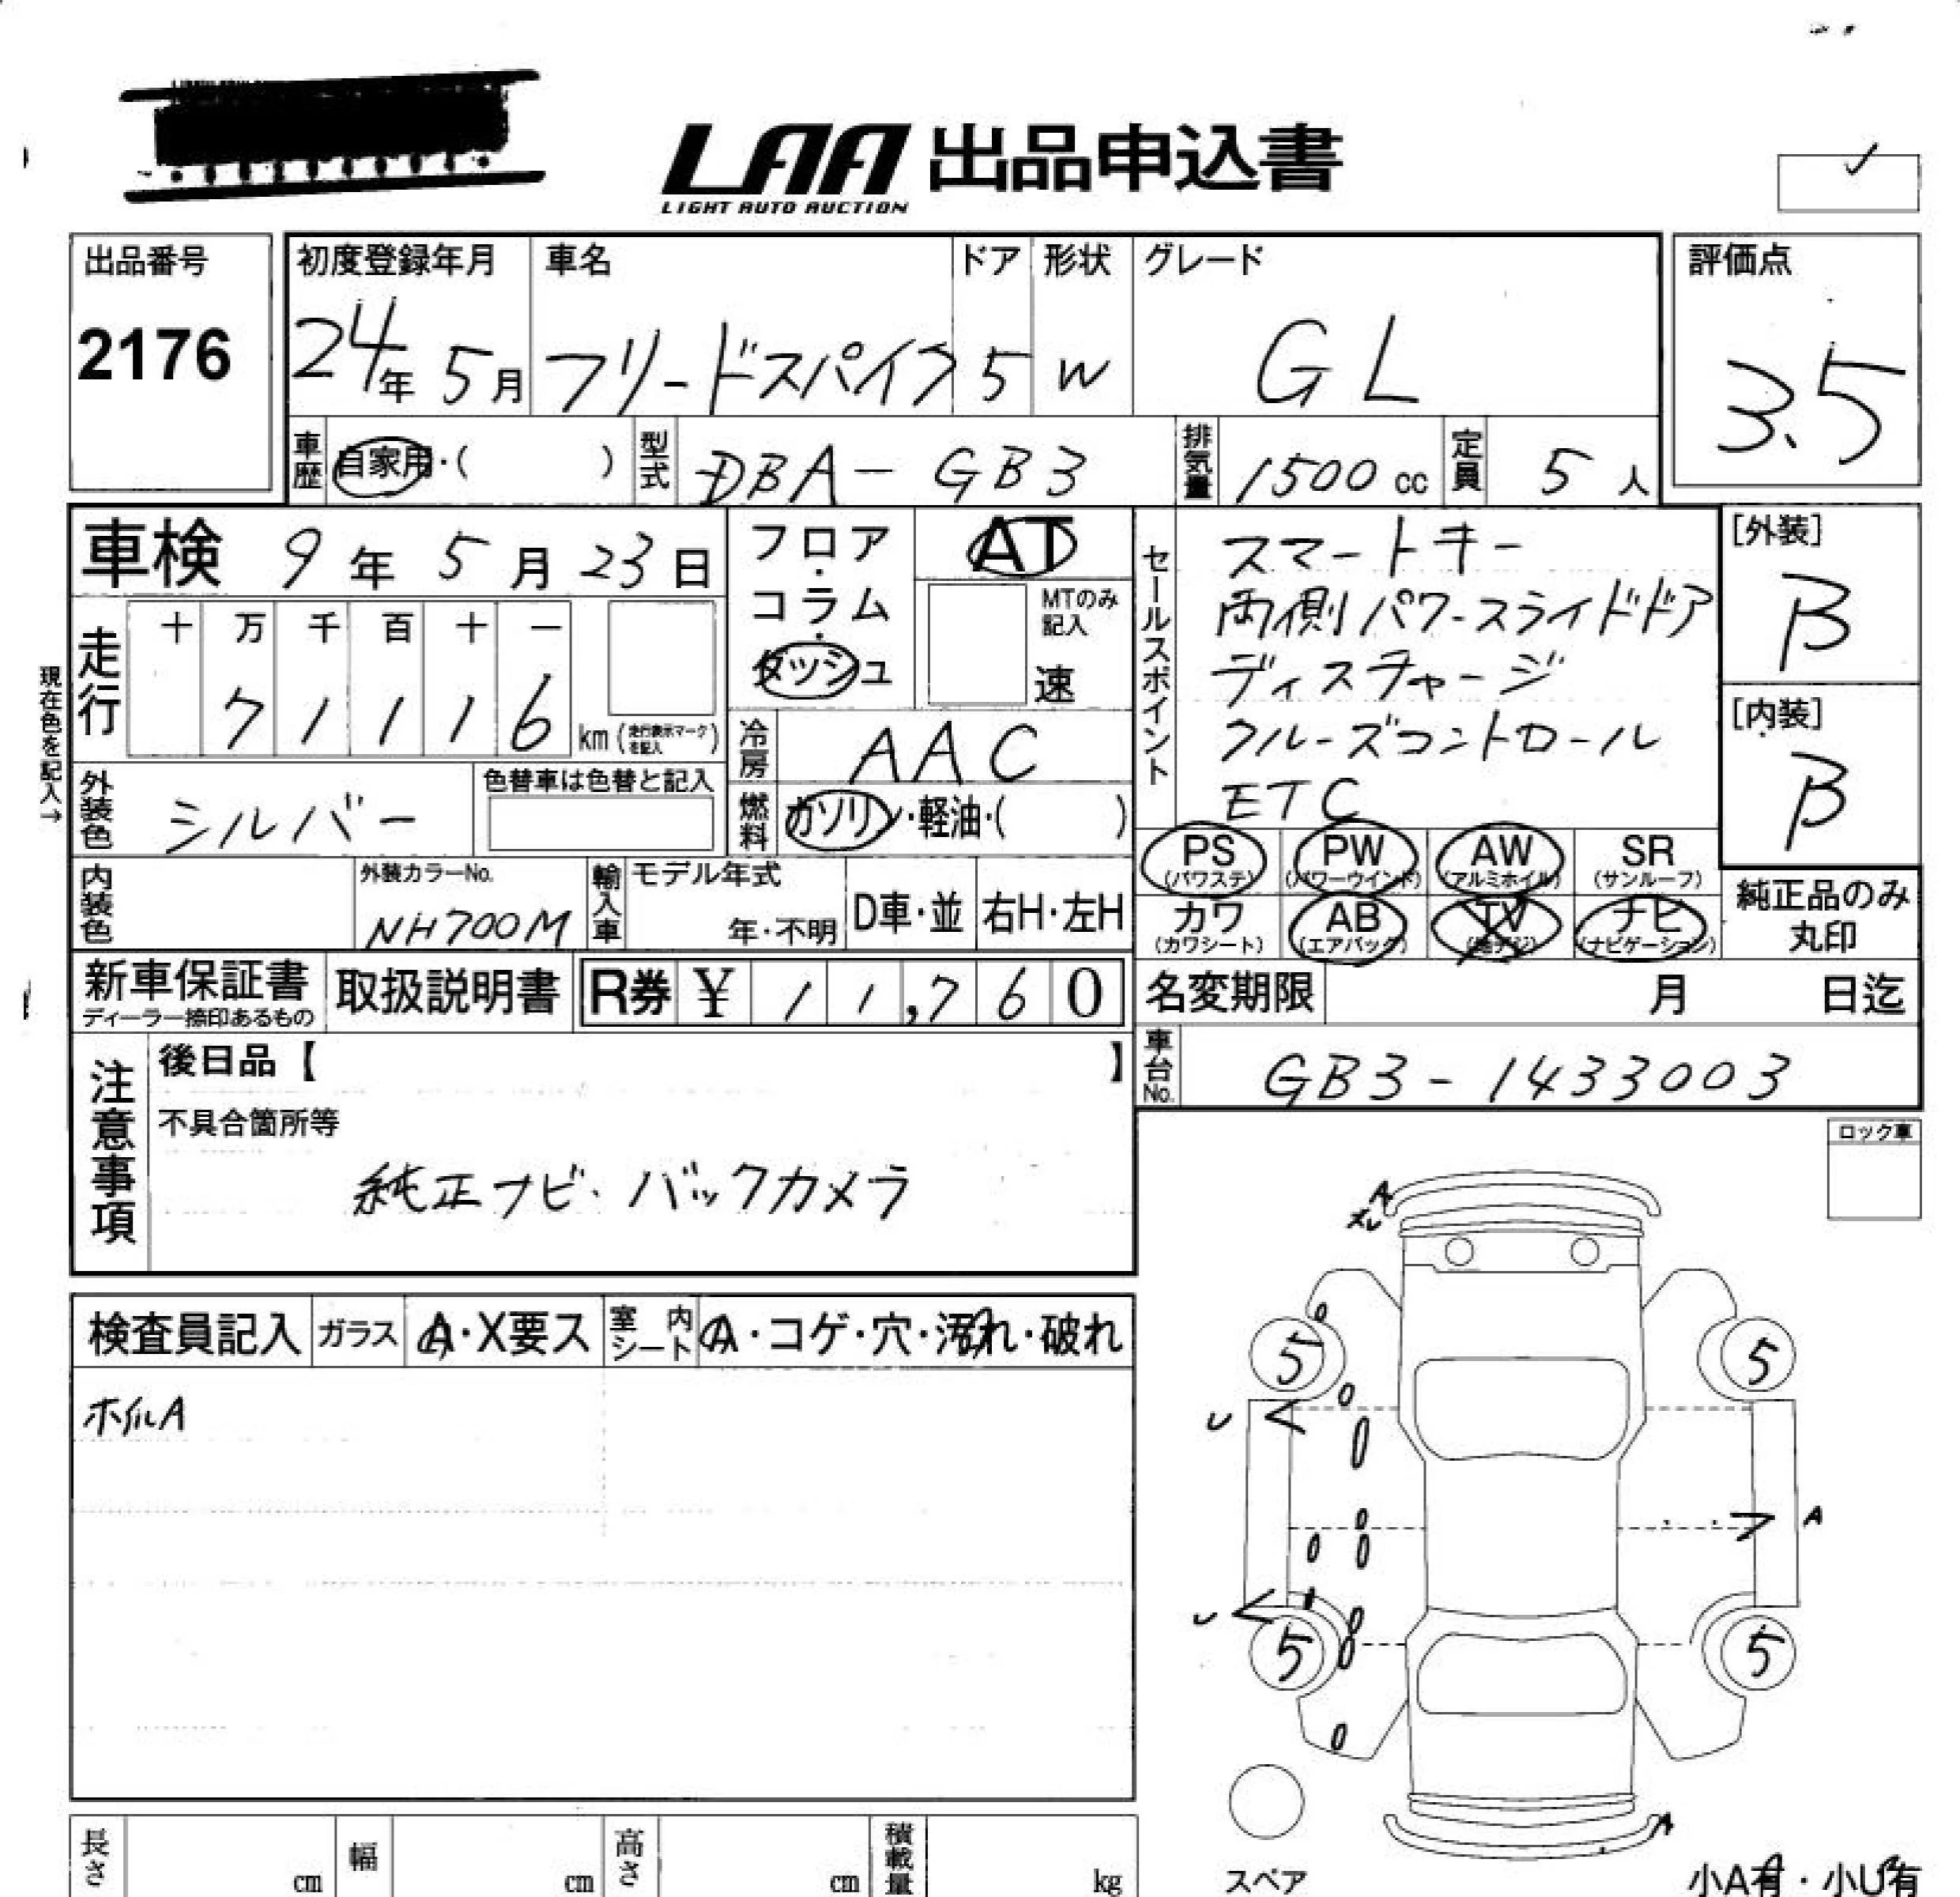 LAA 出品申込書
LIGHT AUTO AUCTION
出品番号
2176
初度登録年月
24年 5月
車名
フリードスパイク
ドア
5
形状
W
グレード
GL
評価点
3.5
車歴
自家用・( )
型式
DBA-GB3
排気量
1500 cc
定員
5 人
車検 9年 5月 23日
現在色を記入→
走行
十 万 千 百 十 一
7 1 1 1 6
km (走行表示マークを記入)
フロア・コラム・ダッシュ
AT
MTのみ記入
速
冷房
AAC
燃料
ガソリン・軽油・( )
外装色
シルバー
色替車は色替と記入
内装色
外装カラーNo.
NH700M
輸入車
モデル年式
年・不明
D車・並
右H・左H
セールスポイント
スマートキー
両側パワースライドドア
ディスチャージ
クルーズコントロール
ETC
[外装]
B
[内装]
B
PS
(パワステ)
PW
(パワーウインド)
AW
(アルミホイル)
SR
(サンルーフ)
カワ
(カワシート)
AB
(エアバック)
TV
(地デジ)
ナビ
(ナビゲーション)
純正品のみ
丸印
新車保証書
ディーラー捺印あるもの
取扱説明書
R券 ¥ 11,760
名変期限 月 日迄
車台No.
GB3-1433003
注意事項
後日品【 】
不具合箇所等
純正ナビ・バックカメラ
ロック車
検査員記入
ガラス
A・X要ス
室内シート
A・コゲ・穴・汚れ・破れ
ホイルA
A
U
A
U
5
5
5
5
A
スペア
小A有・小U有
長さ
cm
幅
cm
高さ
cm
積載量
kg